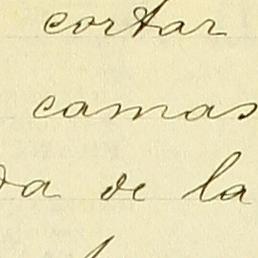 cortar
camas
da de la